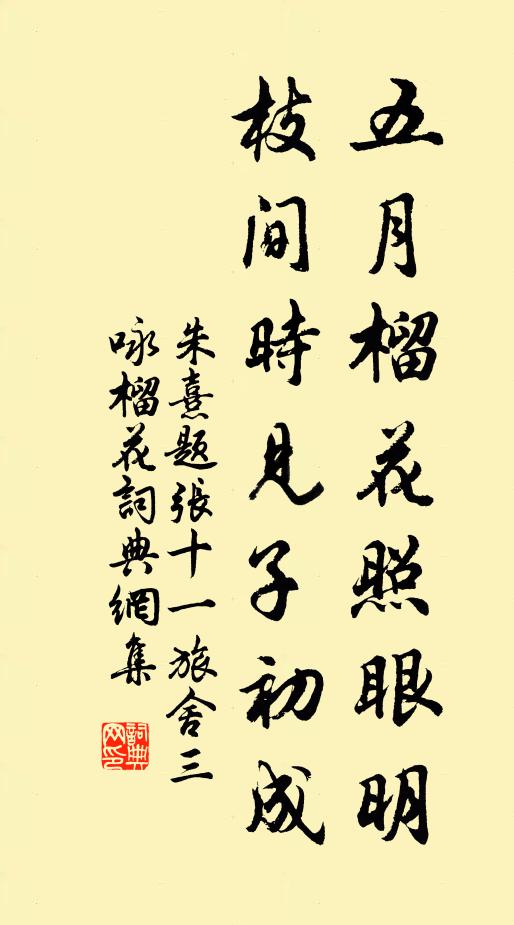 五月榴花照眼明
枝间時見子初成
朱熹题張十一旅舍三
咏榴花詞典網集
詞典网印